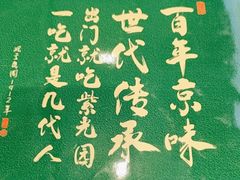 百年京味
世代传承
出门就吃紫光园
一吃就是几代人
1912年